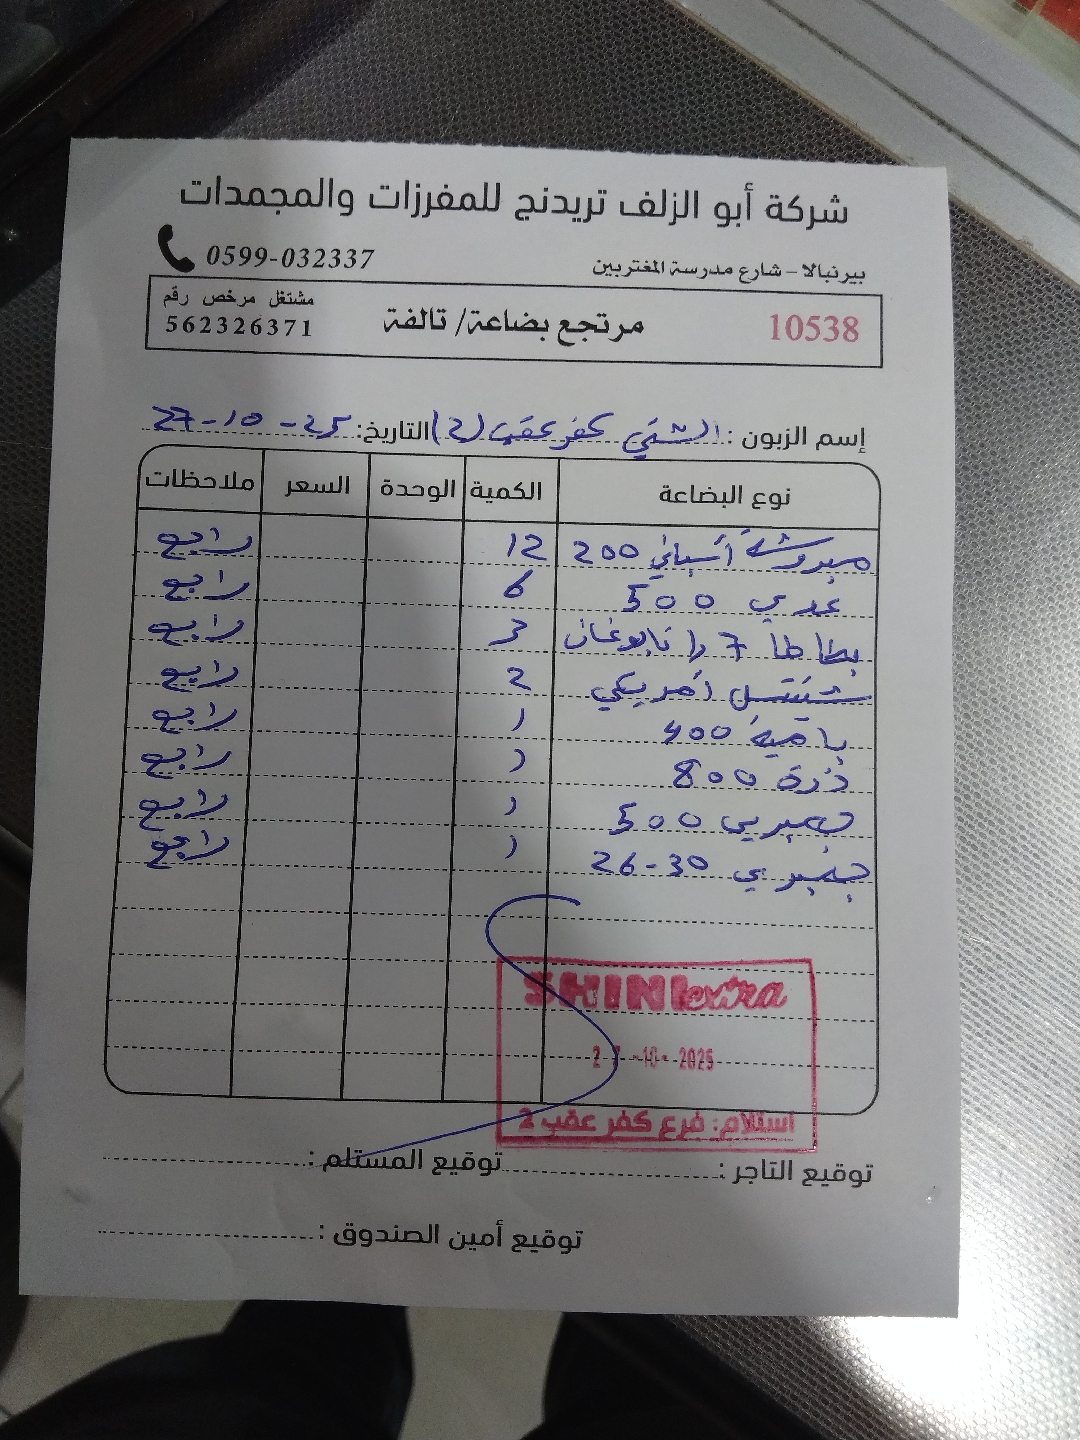 شركة أبو الزلف تريدنج للمفرزات والمجمدات
بيرنبالا - شارع مدرسة المغتربين 0599-032337
10538 مرتجع بضاعة/ تالفة مشتغل مرخص رقم
562326371
إسم الزبون: الشني كفر عقب (2) التاريخ: 27-10-25
نوع البضاعة الكمية الوحدة السعر ملاحظات
مبروشة أسباني 200 12 راجع
عدي 500 6 راجع
بطاطا 7 3 راجع
شنتسل أمريكي 2 راجع
بامية 400 1 راجع
ذرة 800 1 راجع
جمبري 500 1 راجع
جمبري 26-30 1 راجع
SHINI extra
27-10-2025
استلام: فرع كفر عقب 2
توقيع التاجر: توقيع المستلم:
توقيع أمين الصندوق: